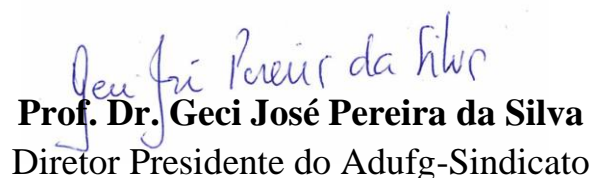 Geci José Pereira da Silva
Prof. Dr. Geci José Pereira da Silva
Diretor Presidente do Adufg-Sindicato